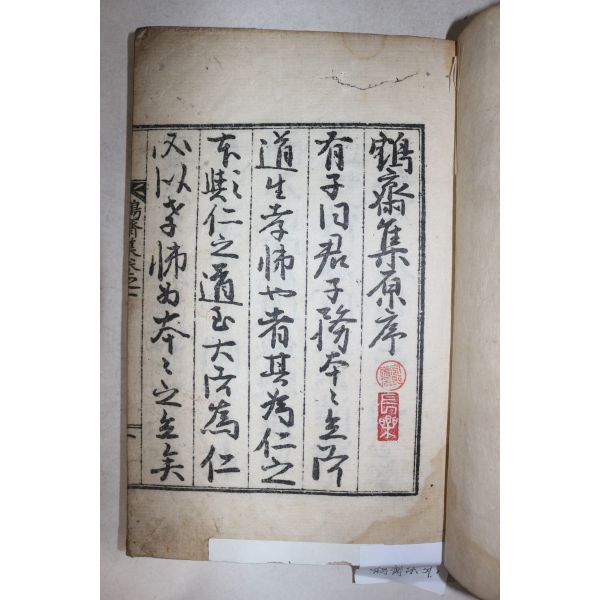 鶴齋集原序
有子曰君子務本〻立而
道生孝悌也者其為仁之
本〻與仁之道至大而為仁
必以孝悌為本〻之立矣
鶴齋集
長樂